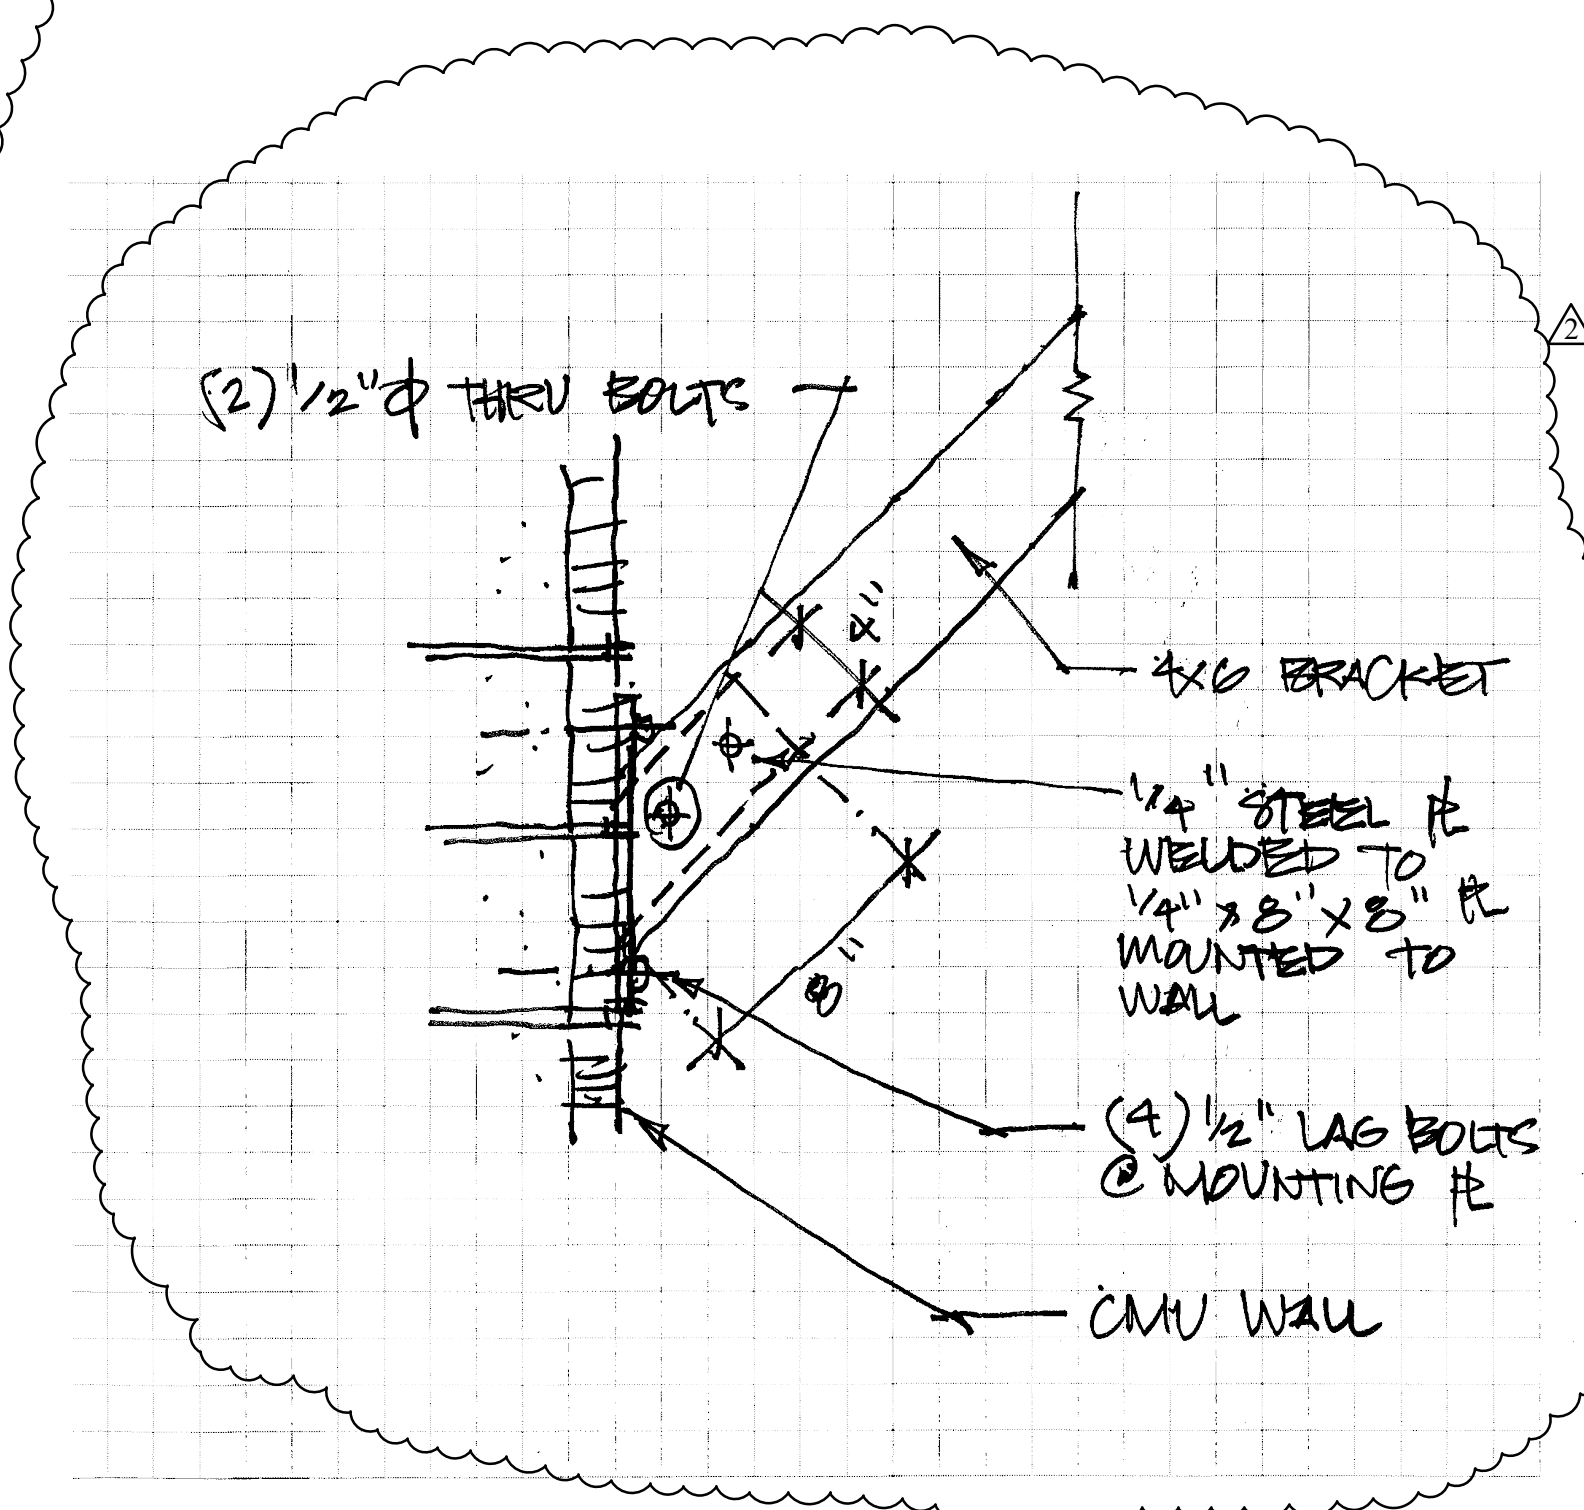 2
(2) 1/2"ϕ THRU BOLTS
4"
4X6 BRACKET
1/4" STEEL ⅊
WELDED TO
1/4" X 8" X 8" ⅊
MOUNTED TO
WALL
8"
(4) 1/2" LAG BOLTS
@ MOUNTING ⅊
CMU WALL